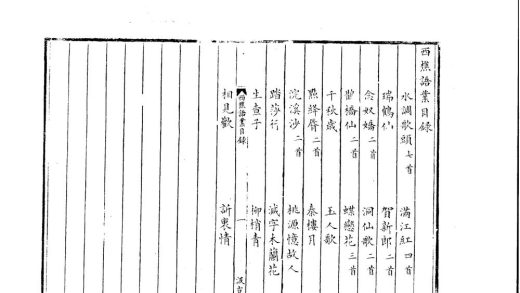 西樵語業目錄
水調歌頭七首 滿江紅四首
瑞鶴仙 賀新郎二首
念奴嬌二首 洞仙歌二首
鵲橋仙二首 蝶戀花三首
千秋歲 玉人歌
點絳唇二首 秦樓月
浣溪沙二首 桃源憶故人
踏莎行 減字木蘭花
生查子 柳梢青
西樵語業目錄 一 汲古
相見歡 訴衷情